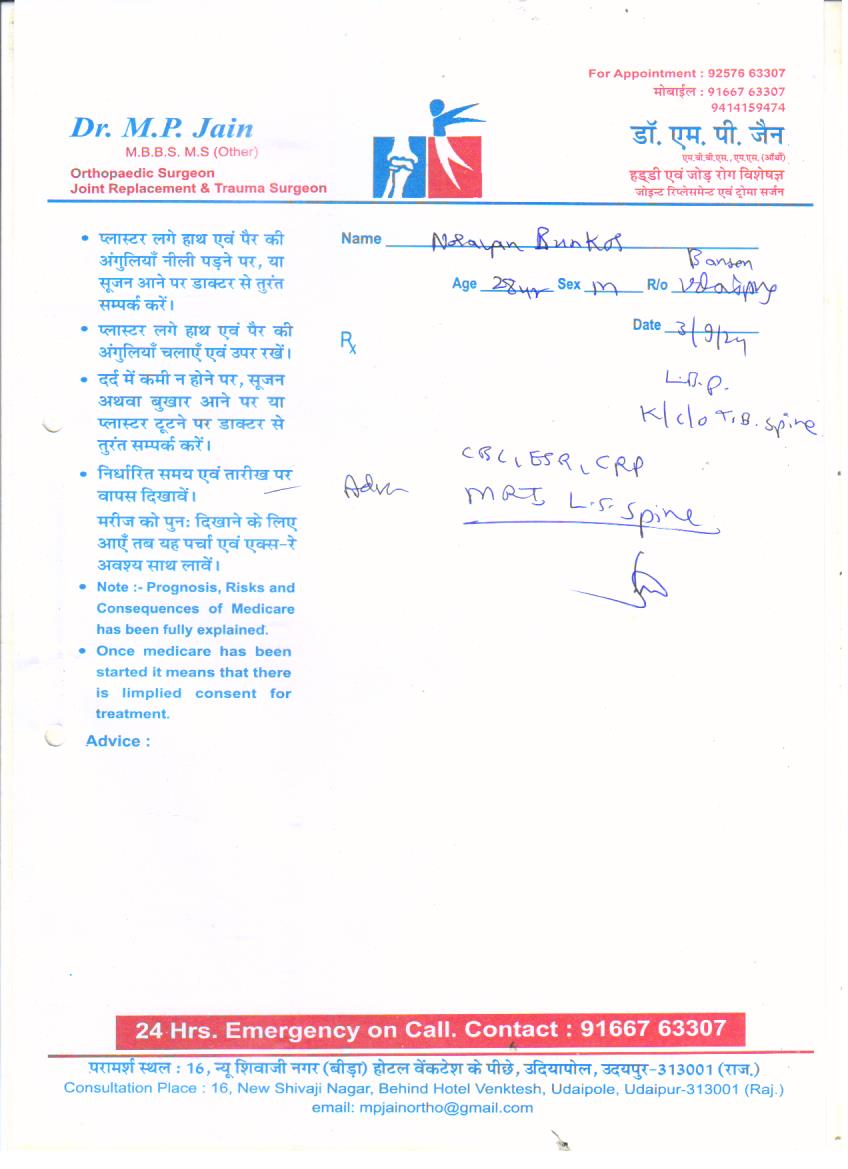 For Appointment : 92576 63307
मोबाईल : 91667 63307
9414159474
Dr. M.P. Jain
M.B.B.S. M.S (Other)
Orthopaedic Surgeon
Joint Replacement & Trauma Surgeon
डॉ. एम. पी. जैन
एम.बी.बी.एस., एम.एस. (ऑर्थो)
हड्डी एवं जोड़ रोग विशेषज्ञ
जोइन्ट रिप्लेसमेन्ट एवं ट्रोमा सर्जन
• प्लास्टर लगे हाथ एवं पैर की
अंगुलियाँ नीली पड़ने पर, या
सूजन आने पर डाक्टर से तुरंत
सम्पर्क करें।
• प्लास्टर लगे हाथ एवं पैर की
अंगुलियाँ चलाएँ एवं उपर रखें।
• दर्द में कमी न होने पर, सूजन
अथवा बुखार आने पर या
प्लास्टर टूटने पर डाक्टर से
तुरंत सम्पर्क करें।
• निर्धारित समय एवं तारीख पर
वापस दिखावें।
मरीज को पुनः दिखाने के लिए
आएँ तब यह पर्चा एवं एक्स-रे
अवश्य साथ लावें।
• Note :- Prognosis, Risks and
Consequences of Medicare
has been fully explained.
• Once medicare has been
started it means that there
is limplied consent for
treatment.
Advice :
Name Narayan Bunkar
Age 28 yr Sex m R/o Udaipur
Date 3/9/24
Rx
L.B.P.
K/c/o T.B. Spine
CBC, ESR, CRP
Adv
MRI L.S. Spine
24 Hrs. Emergency on Call. Contact : 91667 63307
परामर्श स्थल : 16, न्यू शिवाजी नगर (बीड़ा) होटल वेंकटेश के पीछे, उदियापोल, उदयपुर-313001 (राज.)
Consultation Place : 16, New Shivaji Nagar, Behind Hotel Venktesh, Udaipole, Udaipur-313001 (Raj.)
email: mpjainortho@gmail.com